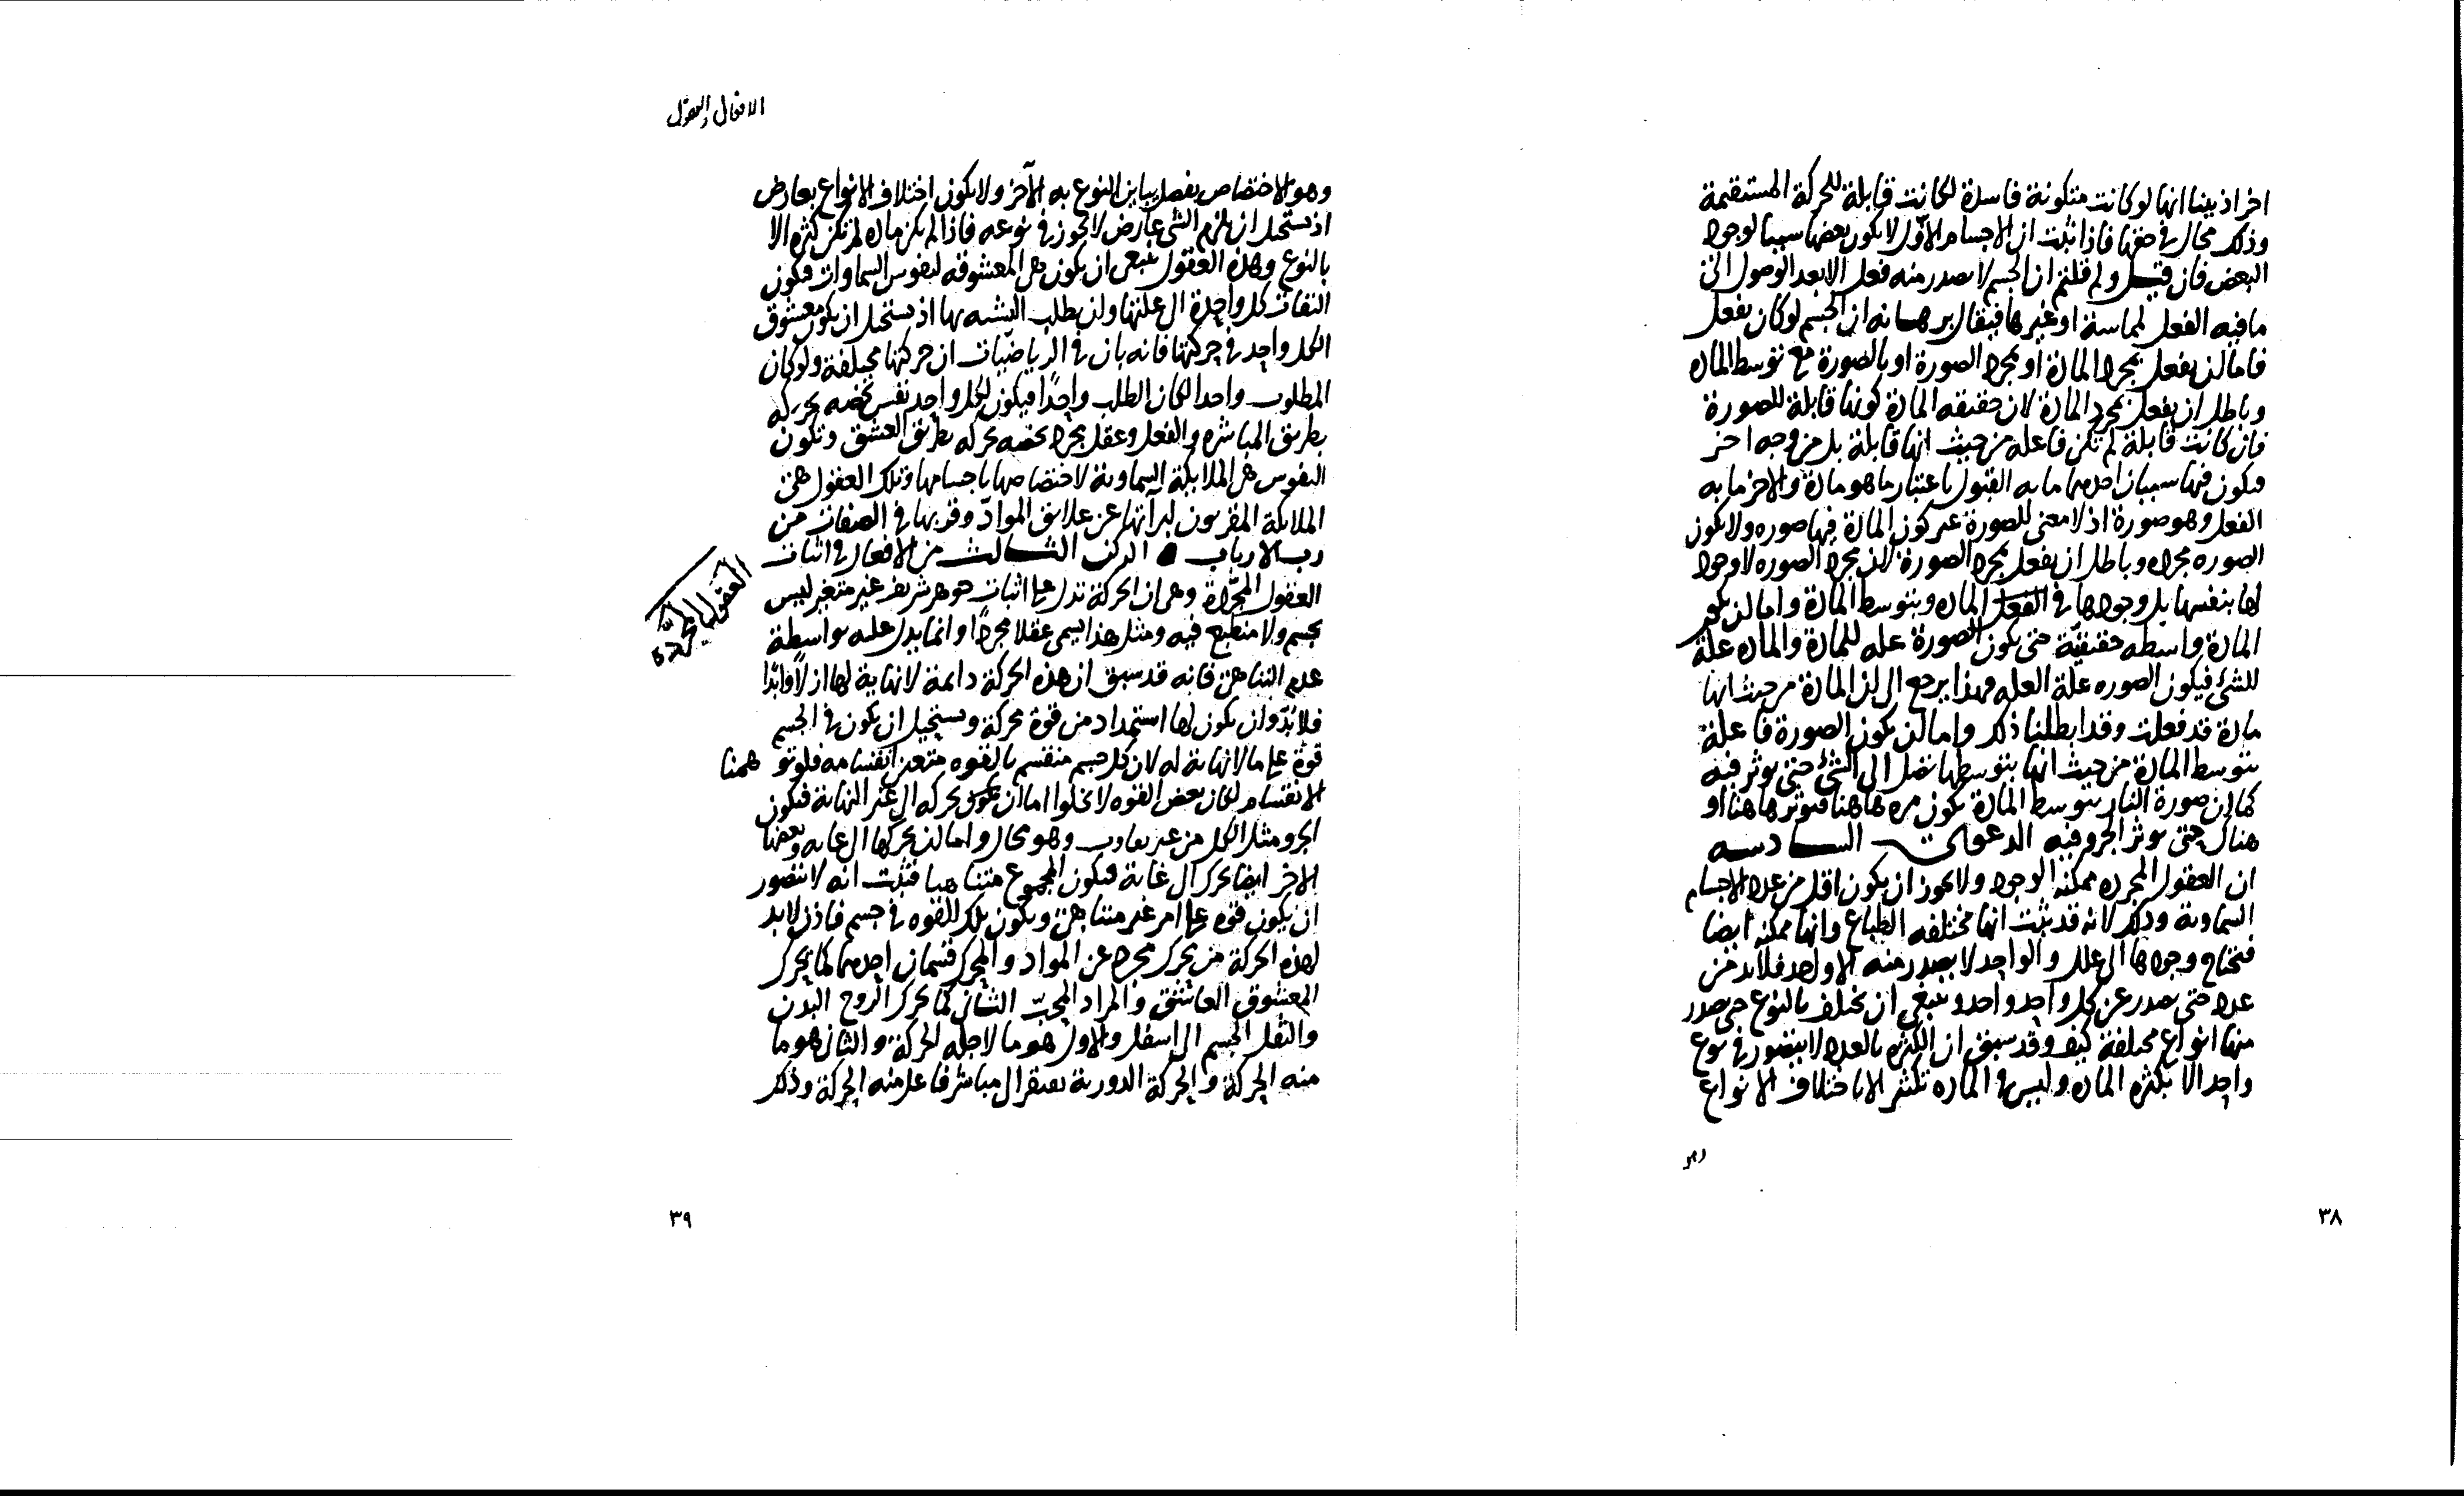 اخر اذ بينا انها لو كانت متكونة فاسدة لكانت قابلة للحركة المستقيمة
وذلك محال في حقها فاذا ثبت ان الاجسام الاول لا يكون بعضها سببا لوجود
البعض فان قيل ولم قلتم ان الجسم لا يصدر منه فعل الا بعد الوصول الى
ما فيه الفعل لمماسة او غيرها فيقال برهانه ان الجسم لو كان يفعل
فاما ان يفعل بمجرد المادة او بمجرد الصورة او بالصورة مع توسط الماده
وباطل ان يفعل بمجرد المادة لان حقيقه المادة كونها قابلة للصورة
فان كانت قابلة لم تكن فاعله من حيث انها قابلة بل من وجه اخر
فيكون فيها سببان احدهما ما به القبول باعتبار ما هو مادة والاخر ما به
الفعل وهو صورة اذ لا معنى للصورة غير كون المادة فيها صوره ولا يكون
الصوره مجرده وباطل ان يفعل بمجرد الصورة لان مجرد الصوره لا وجود
لها بنفسها بل وجودها في الماده وبتوسط المادة واما ان يكون
المادة واسطه حقيقية حتى يكون الصورة عله للمادة والماده علة
للشئ فيكون الصوره علة العله وهذا يرجع الى ان المادة من حيث انها
مادة قد فعلت وقد ابطلنا ذلك واما ان يكون الصورة فاعلة
بتوسط المادة من حيث انها بتوسطها تصل الى الشئ حتى يوثر فيه
كما ان صورة النار بتوسط المادة يكون مره هاهنا فيوثر هاهنا او
هناك حتى يوثر الجرو فيه الدعوى السادسه
ان العقول المجرده ممكنه الوجود ولا يجوز ان يكون اقل من عدد الاجسام
السماوية وذلك لانه قد ثبت انها مختلفه الطباع وانها ممكنه ايضا
فيحتاج وجودها الى علل والواحد لا يصدر منه الا واحد فلابد من
عدد حتى يصدر عن كل واحد واحد وينبغي ان يختلف بالنوع حتى يصدر
منها انواع مختلفة كيف وقد سبق ان الكثره بالعدد لا يتصور في نوع
واحد الا بكثره الماده وليس في الماده تكثر الا باختلاف الانواع
وهو
٣٨
الافعال والعقول
وهو الاختصاص بفصل يباين النوع به الآخر ولا يكون اختلاف الانواع بعارض
اذ يستحيل ان يلزم الشئ عارض لا يجوز في نوعه فاذا لم يكن ماده لم تكن كثره الا
بالنوع وهذه العقول ينبغي ان يكون هي المعشوقه لنفوس السماوات فيكون
التفات كل واحدة الى علتها وان يطلب التشبه بها اذ يستحيل ان يكون معشوق
الكل واحد في حركتها فانه بان في الرياضيات ان حركتها مختلفة ولو كان
المطلوب واحدا لكان الطلب واحدًا فيكون لكل واحد نفس تخصه يحركه
بطريق المباشره والفعل وعقل مجرد يخصه يحركه بطريق العشق وتكون
النفوس هي الملايكة السماوية لاختصاصها باجسامها وتلك العقول هي
الملايكة المقربون لبرآتها عن علايق الموادّ وقربها في الصفات من
رب الارباب الركن الثالث من الافعال في اثبات
العقول المجرّدة وهى ان الحركة تدل على اثبات جوهر شريف غير متغير ليس
بجسم ولا منطبع فيه ومثل هذا يسمى عقلا مجردًا وانما يدل عليه بواسطة
عدم التناهى فانه قد سبق ان هذه الحركة دايمة لا نهاية لها ازلًا وابدًا
فلابُدّ وان يكون لها استمداد من قوة محركة ويستحيل ان يكون في الجسم
قوّة على ما لا نهاية له لان كل جسم منقسم بالقوه منقسم فلو توهمنا
الانقسام لكان بعض القوه لا يخلوا اما ان يكون يحركه الى غير النهاية فيكون
الجزو مثل الكل من غير تفاوت وهو محال واما ان يحركها الى غايه وبعضها
الاخر ايضا يحرك الى غاية فيكون المجموع متناهيا فثبت انه لا يتصور
ان يكون قوه على امر غير متناهى ويكون تلك القوه في جسم فاذن لابد
لهذه الحركة من محرك مجرد عن المواد والمحرك قسمان احدهما كما يحرك
المعشوق العاشق والمراد المحبّ الثانى كما يحرك الروح البدن
والثقل الجسم الى اسفل والاول هو ما لاجله الحركة والثانى هو ما
منه الحركة والحركة الدورية تفتقر الى مباشر فاعل منه الحركة وذلك
العقول المجرّده
٣٩